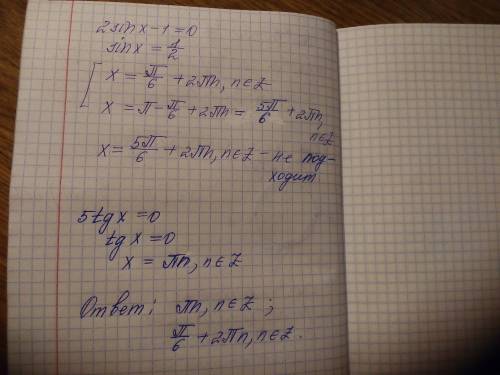 2sinx-1=0
sinx=1/2
[ x = π/6 + 2πn, n∈Z
x = π-π/6 + 2πn = 5π/6 + 2πn, n∈Z
x = 5π/6 + 2πn, n∈Z - не под-
ходит
5tgx=0
tgx=0
x = πn, n∈Z
Ответ: πn, n∈Z ;
π/6 + 2πn, n∈Z.